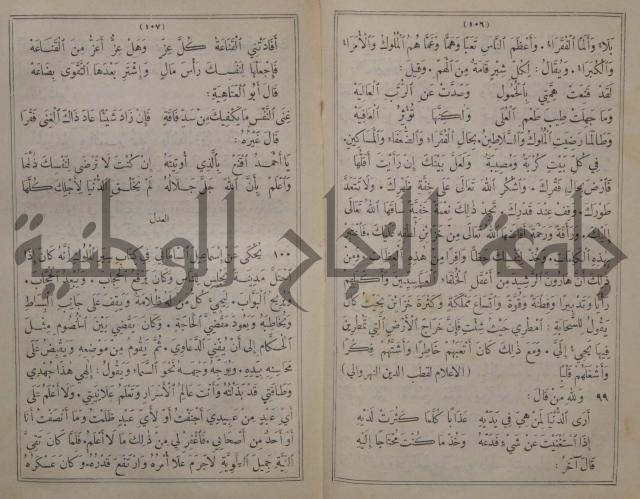 (١٠٦)
بَلَاءً وَأَلَمًا الْفُقَرَاءُ. وَأَعْظَمُ النَّاسِ تَعَبًا وَهَمًّا وَغَمًّا هُمُ الْمُلُوكُ وَالْأُمَرَاءُ
وَالْكُبَرَاءُ. وَيُقَالُ: لِكُلِّ شِبْرِ قَامَةٍ مِنَ الْهَمِّ. وَقِيلَ:
لَقَدْ قَنِعَتْ هِمَّتِي بِالْخُمُولِ وَصَدَّتْ عَنِ الرُّتَبِ الْعَالِيَهْ
وَمَا جَهِلَتْ طِيبَ طَعْمِ الْعُلَى وَلٰكِنَّهَا تُؤْثِرُ الْعَافِيَهْ
وَطَالَمَا رَضِيَتِ الْمُلُوكُ وَالسَّلَاطِينُ. بِحَالِ الْفُقَرَاءِ وَالضُّعَفَاءِ وَالْمَسَاكِينِ.
فِي كُلِّ بَيْتٍ كُرْبَةٌ وَمُصِيبَةٌ وَلَعَلَّ بَيْتَكَ إِنْ رَأَيْتَ أَقَلُّهَا
فَارْضَ بِحَالِ فَقْرِكَ. وَاشْكُرِ اللّٰهَ تَعَالَى عَلَى خِفَّةِ ظَهْرِكَ. وَلَا تَتَعَدَّ
طَوْرَكَ. وَقِفْ عِنْدَ قَدْرِكَ. تَجِدْ ذٰلِكَ نِعْمَةً خَفِيَّةً سَاقَهَا اللّٰهُ تَعَالَى
إِلَيْكَ. وَرَأْفَةً وَرَحْمَةً أَفَاضَهَا اللّٰهُ تَعَالَى مِنْ خَزَائِنِ لُطْفِهِ عَلَيْكَ. فَاعْتَبِرْ
بِهٰذِهِ الْكَلِمَاتِ. وَخُذْ لِنَفْسِكَ حَظًّا وَافِرًا مِنْ هٰذِهِ الْعِظَاتِ. وَمِنْ
ذٰلِكَ أَنَّ هَارُونَ الرَّشِيدَ مِنْ أَعْقَلِ الْخُلَفَاءِ الْعَبَّاسِيِّينَ وَأَكْمَلِهِمْ
رَأْيًا وَتَدْبِيرًا وَفِطْنَةً وَقُوَّةً وَاتِّسَاعَ مَمْلَكَةٍ وَكَثْرَةَ خَزَائِنَ بِحَيْثُ كَانَ
يَقُولُ لِلسَّحَابَةِ: امْطُرِي حَيْثُ شِئْتِ فَإِنَّ خَرَاجَ الْأَرْضِ الَّتِي تُمْطِرِينَ
فِيهَا يَجِيءُ إِلَيَّ. وَمَعَ ذٰلِكَ كَانَ أَتْعَبَهُمْ خَاطِرًا وَأَشَتَّهُمْ فِكْرًا
وَأَشْغَلَهُمْ قَلْبًا (الاعلام لقطب الدين النهروالي)
٩٩ وَلِلّٰهِ مَنْ قَالَ:
أَرَى الدُّنْيَا لِمَنْ هِيَ فِي يَدَيْهِ عَذَابًا كُلَّمَا كَثُرَتْ لَدَيْهِ
إِذَا اسْتَغْنَيْتَ عَنْ شَيْءٍ فَدَعْهُ وَخُذْ مَا كُنْتَ مُحْتَاجًا إِلَيْهِ
قَالَ آخَرُ:
(١٠٧)
أَفَادَتْنِي الْقَنَاعَةُ كُلَّ عِزٍّ وَهَلْ عِزٌّ أَعَزُّ مِنَ الْقَنَاعَهْ
فَاجْعَلْهَا لِنَفْسِكَ رَأْسَ مَالٍ وَاشْتَرِ بَعْدَهَا التَّقْوَى بِضَاعَهْ
قَالَ أَبُو الْعَتَاهِيَةِ:
غِنَى النَّفْسِ مَا يَكْفِيكَ مِنْ سَدِّ فَاقَةٍ فَإِنْ زَادَ شَيْئًا عَادَ ذَاكَ الْغِنَى فَقْرَا
قَالَ غَيْرُهُ:
يَا أَحْمَدُ اقْنَعْ بِالَّذِي أُوتِيتَهُ إِنْ كُنْتَ لَا تَرْضَى لِنَفْسِكَ ذُلَّهَا
وَاعْلَمْ بِأَنَّ اللّٰهَ جَلَّ جَلَالُهُ لَمْ يَخْلُقِ الدُّنْيَا لِأَجْلِكَ كُلَّهَا
العدل
١٠٠ يُحْكَى عَنْ إِسْمَاعِيلَ السَّامَانِيِّ فِي كِتَابِ سِيَرِ الْمُلُوكِ أَنَّهُ كَانَ إِذَا
الْبِسَاطِ
وَيُخَاطِبُهُ وَيَعُودُ مَقْضِيَّ الْحَاجَةِ. وَكَانَ يَقْضِي بَيْنَ الْخُصُومِ مِثْلَ
الْحُكَّامِ إِلَى أَنْ يُفْنِيَ الدَّعَاوِيَ. ثُمَّ يَقُومُ مِنْ مَوْضِعِهِ وَيَقْبِضُ عَلَى
مَحَاسِنِهِ بِيَدِهِ. وَيُوَجِّهُ وَجْهَهُ نَحْوَ السَّمَاءِ وَيَقُولُ: إِلٰهِي هٰذَا جُهْدِي
وَطَاقَتِي قَدْ بَذَلْتُهُ وَأَنْتَ عَالِمُ الْأَسْرَارِ وَتَعْلَمُ عَلَانِيَتِي. وَلَا أَعْلَمُ عَلَى
أَيِّ عَبْدٍ مِنْ عَبِيدِكَ أَجْحَفْتُ أَوْ لِأَيِّ عَبْدٍ ظَلَمْتُ وَمَا أَنْصَفْتُ أَنَا
أَوْ أَحَدٌ مِنْ أَصْحَابِي. فَاغْفِرْ لِي مِنْ ذٰلِكَ مَا لَا أَعْلَمُهُ. فَلَمَّا كَانَ نَقِيَّ
النِّيَّةِ جَمِيلَ الطَّوِيَّةِ لَا جَرَمَ عَلَا أَمْرُهُ وَارْتَفَعَ قَدْرُهُ. وَكَانَ عَسْكَرُهُ
جامعة النجاح الوطنية